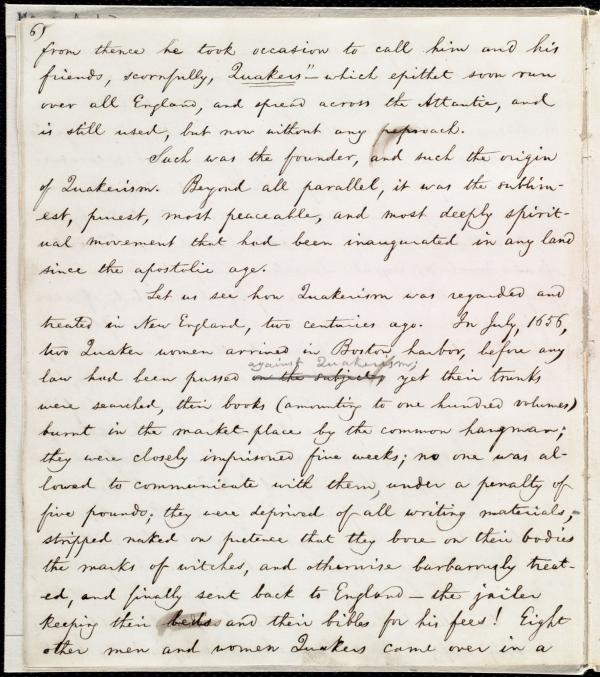 6)
from thence he took occasion to call him and his
friends, scornfully, "Quakers" — which epithet soon ran
over all England, and spread across the Atlantic, and
is still used, but now without any reproach.
Such was the founder, and such the origin
of Quakerism. Beyond all parallel, it was the sublim-
est, purest, most peaceable, and most deeply spirit-
ual movement that had been inaugurated in any land
since the apostolic age.
Let us see how Quakerism was regarded and
treated in New England, two centuries ago. In July, 1656,
two Quaker women arrived in Boston harbor, before any
against Quakerism;
law had been passed on the subject, yet their trunks
were searched, their books (amounting to one hundred volumes)
burnt in the market-place by the common hangman;
they were closely imprisoned five weeks; no one was al-
lowed to communicate with them, under a penalty of
five pounds; they were deprived of all writing materials,
stripped naked on pretence that they bore on their bodies
the marks of witches, and otherwise barbarously treat-
ed, and finally sent back to England — the jailer
keeping their beds and their bibles for his fees! Eight
other men and women Quakers came over in a